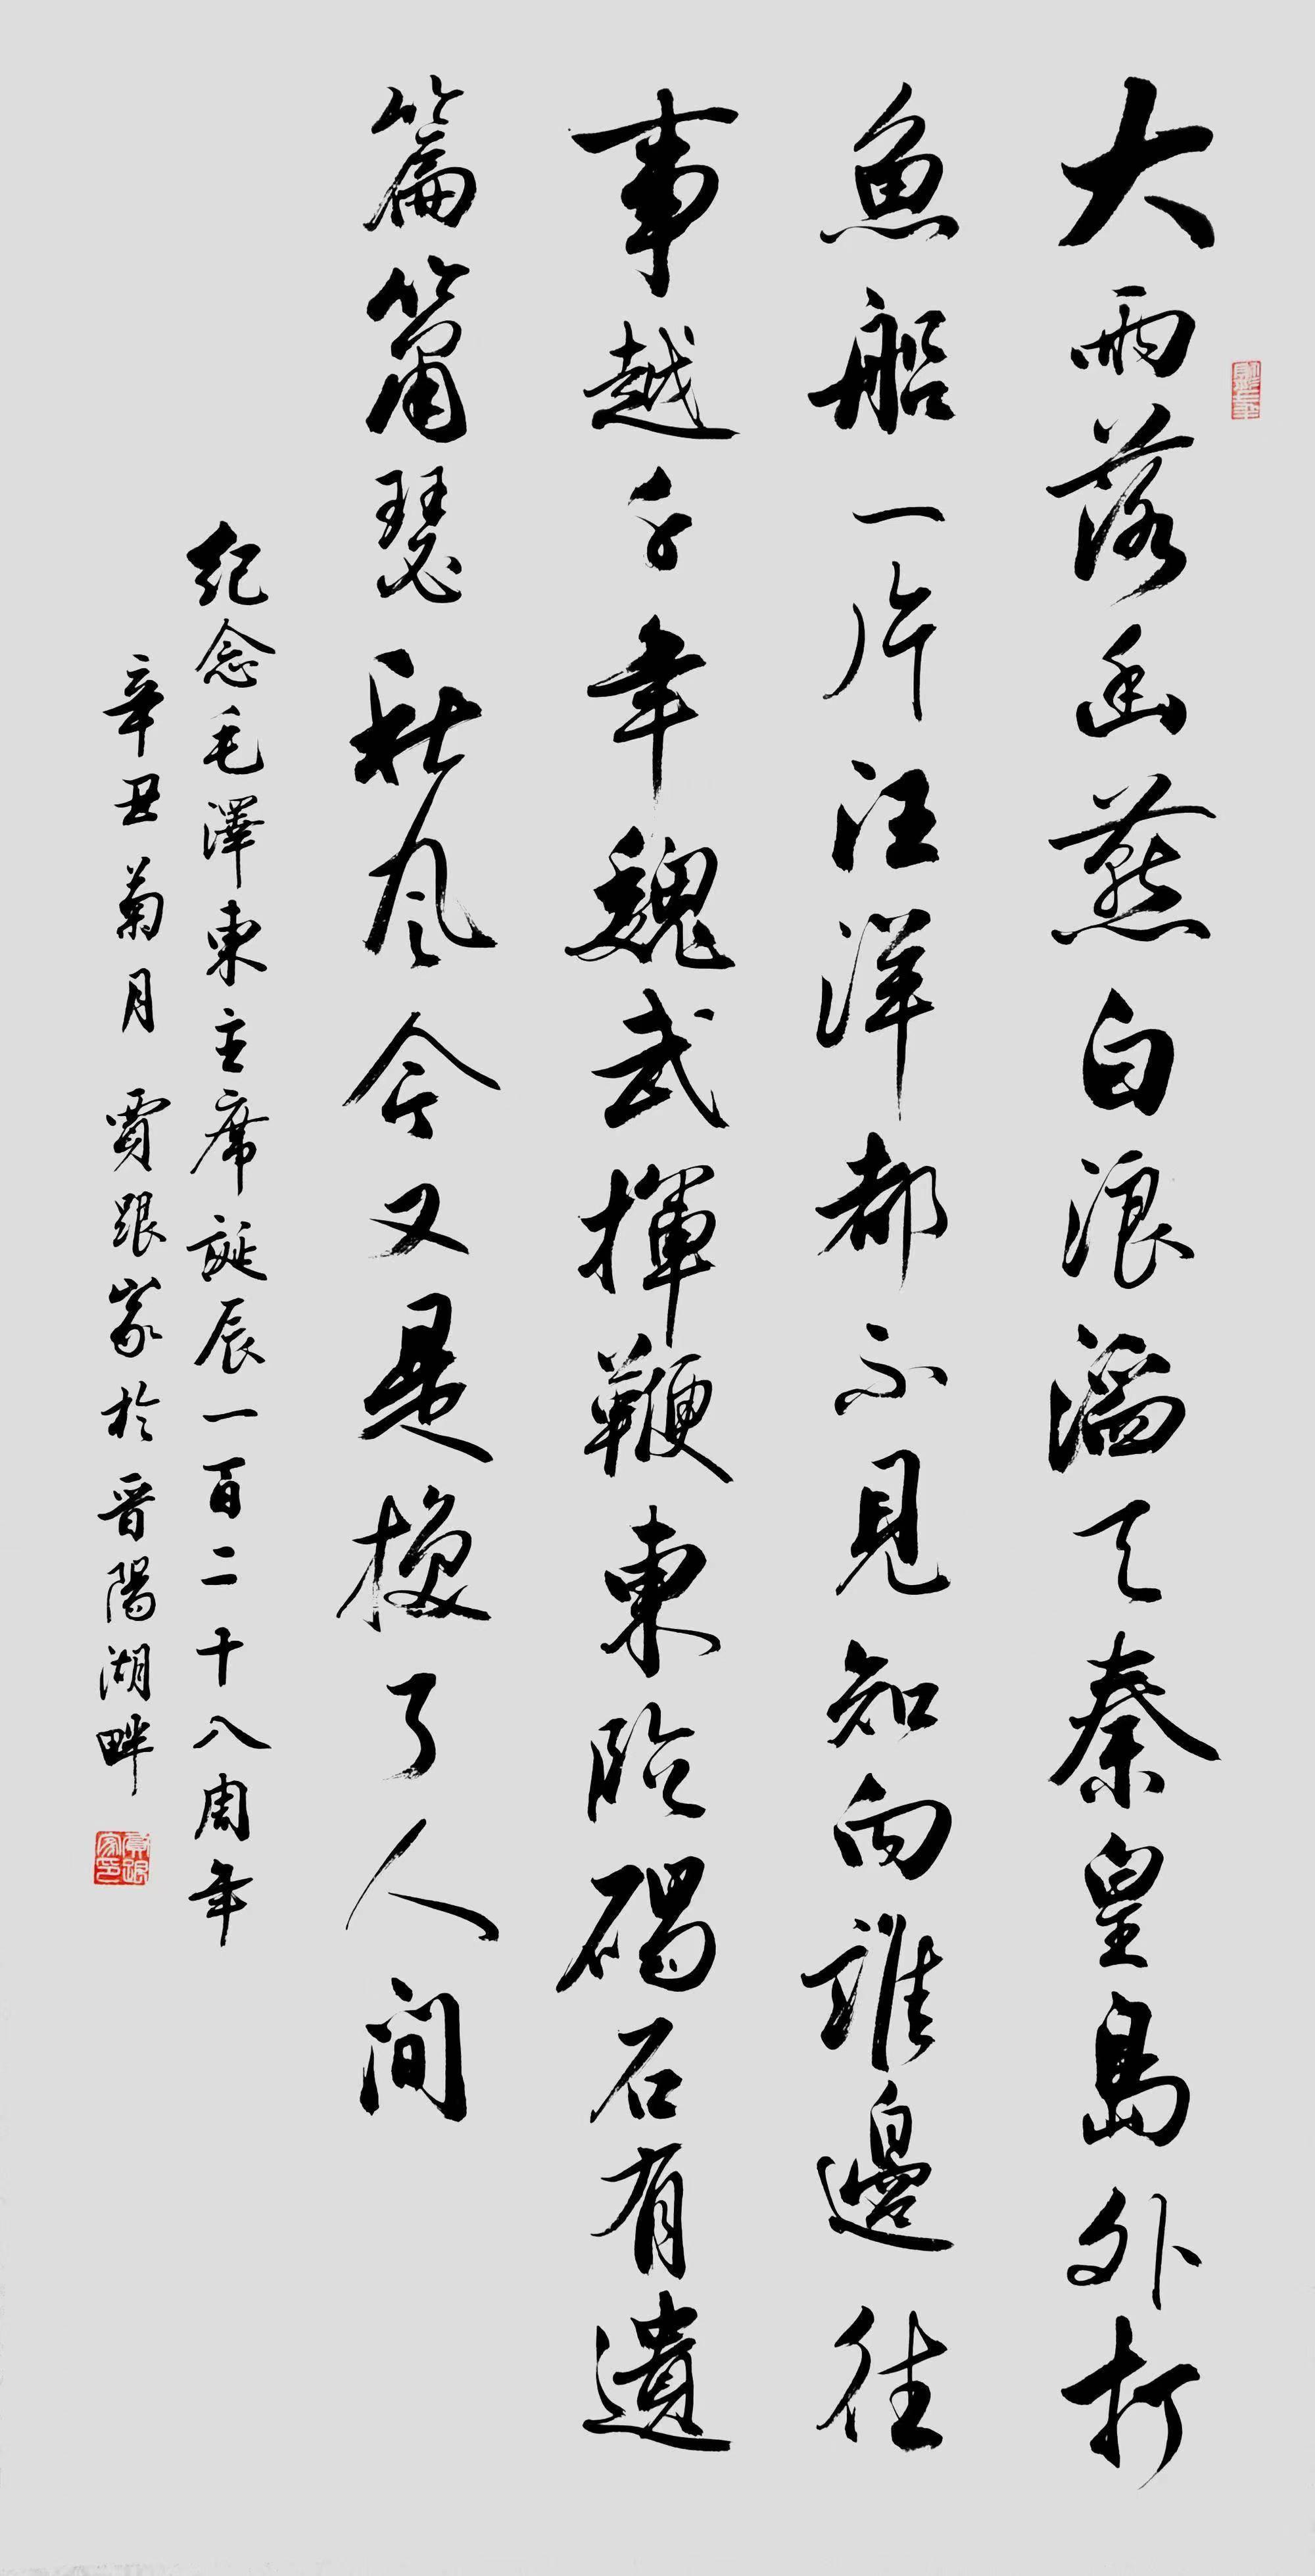 大雨落幽燕白浪滔天秦皇島外打
魚船一片汪洋都不見知向誰邊往
事越千年魏武揮鞭東臨碣石有遺
篇簫瑟秋風今又是換了人間
紀念毛澤東主席誕辰一百二十八周年
辛丑菊月 賈跟家於晋陽湖畔
賈跟家印